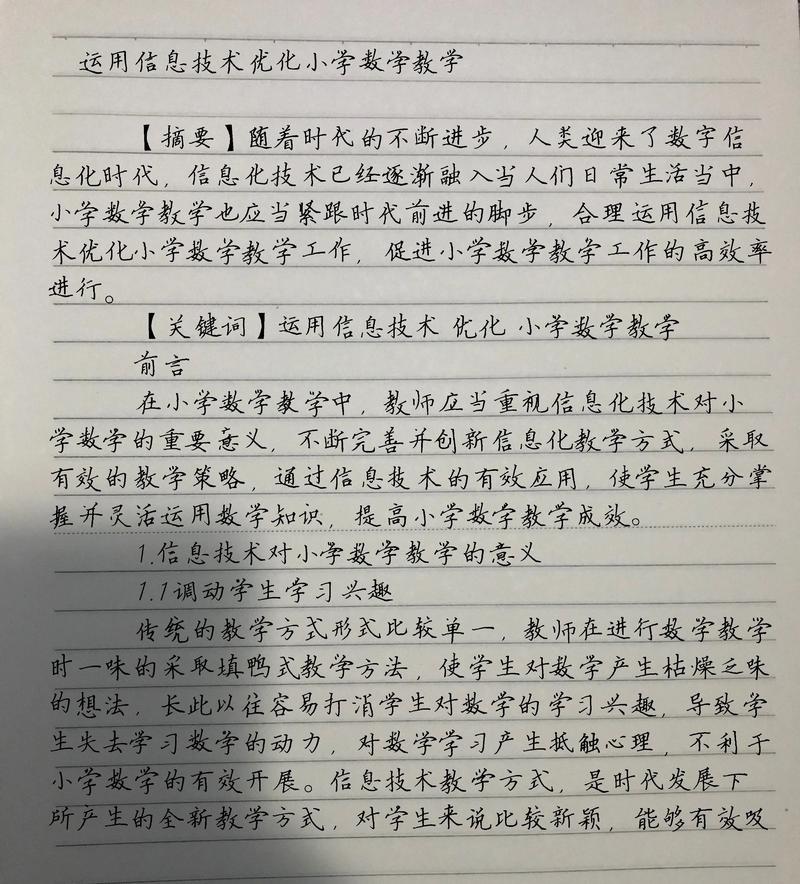 运用信息技术优化小学数学教学
【摘要】随着时代的不断进步，人类迎来了数字信
息化时代，信息化技术已经逐渐融入当人们日常生活当中，
小学数学教学也应当紧跟时代前进的脚步，合理运用信息技
术优化小学数学教学工作，促进小学数学教学工作的高效率
进行。
【关键词】运用信息技术 优化 小学数学教学
前言
在小学数学教学中，教师应当重视信息化技术对小
学数学的重要意义，不断完善并创新信息化教学方式，采取
有效的教学策略，通过信息技术的有效应用，使学生充分掌
握并灵活运用数学知识，提高小学数学教学成效。
1.信息技术对小学数学教学的意义
1.1调动学生学习兴趣
传统的教学方式形式比较单一，教师在进行数学教学
时一味的采取填鸭式教学方法，使学生对数学产生枯燥乏味
的想法，长此以往容易打消学生对数学的学习兴趣，导致学
生失去学习数学的动力，对数学学习产生抵触心理，不利于
小学数学的有效开展。信息技术教学方式，是时代发展下
所产生的全新教学方式，对学生来说比较新颖，能够有效吸